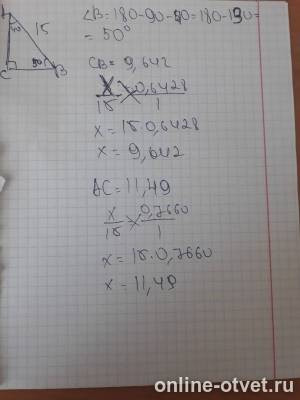 ∠B = 180-90-40=180-130=
= 50°
15
40
C
50°
B
CB = 9,642
x/15 0,6428/1
x = 15·0,6428
x = 9,642
AC = 11,49
x/15 0,7660/1
x = 15·0,7660
x = 11,49
online-otvet.ru